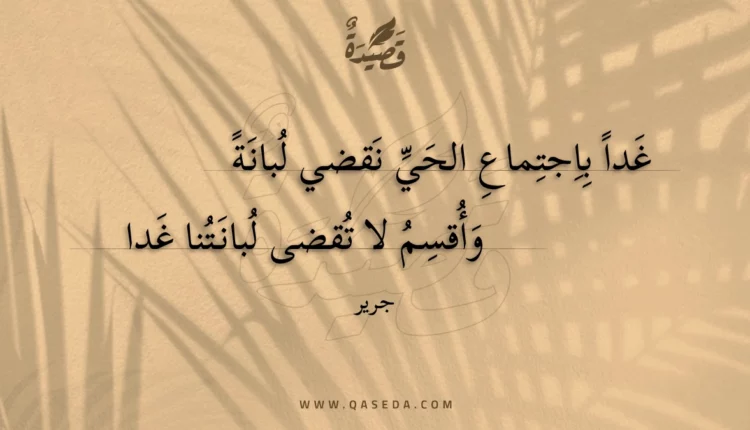 قَصِيْدَةٌ
غَداً بِاِجتِماعِ الحَيِّ نَقضي لُبانَةً
وَأُقسِمُ لا تُقضى لُبانَتُنا غَدا
جرير
WWW.QASEDA.COM